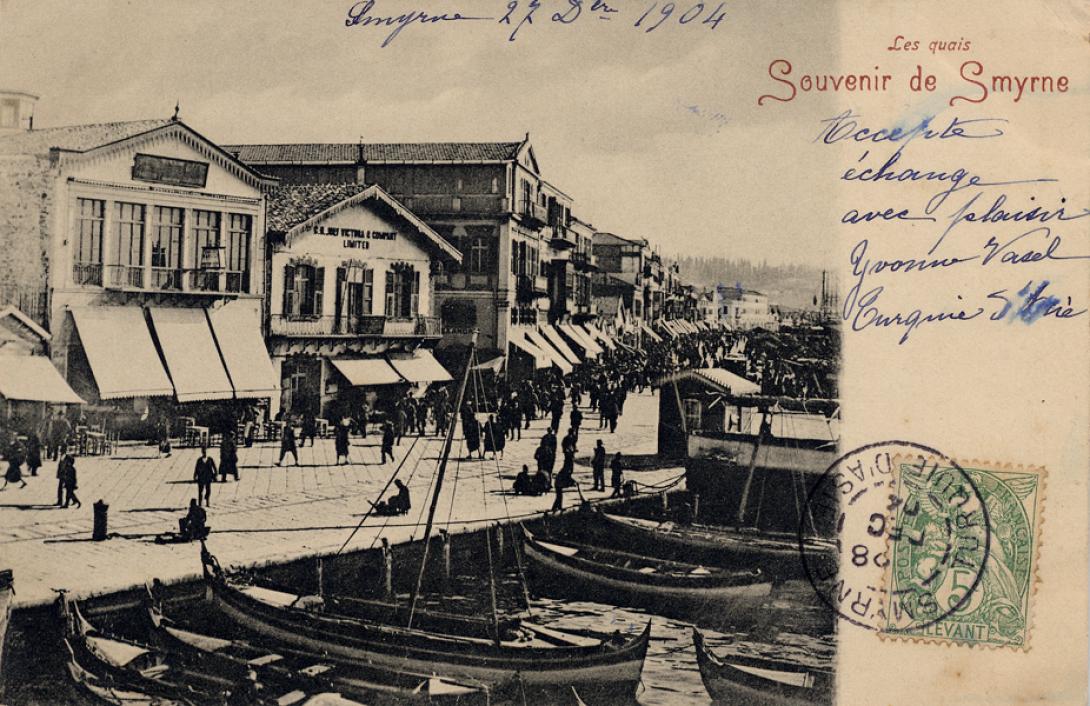 Smyrne 27 Dbre 1904
Les quais
Souvenir de Smyrne
Accepte
échange
avec plaisir
Yvonne Vasel
Turquie d'Asie
G. R. JOLY VICTORIA & COMPANY
LIMITED
SMYRNE
TURQUIE D'ASIE
POSTES FRANÇAISES
5
LEVANT